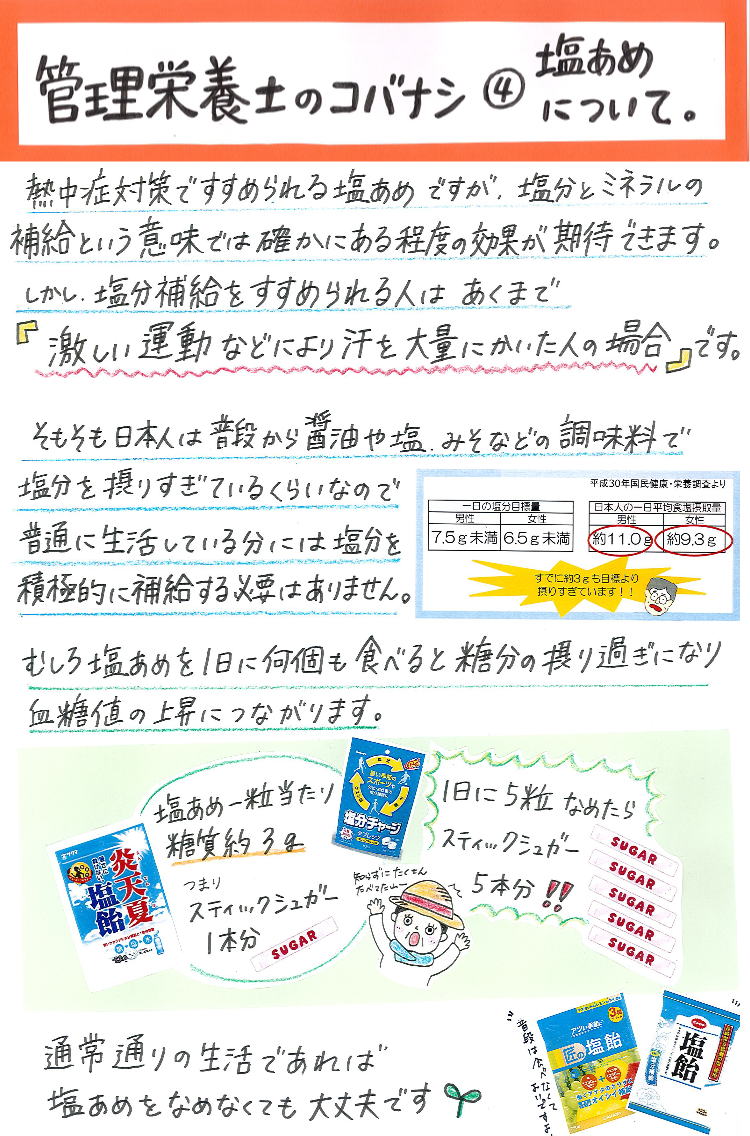 管理栄養士のコバナシ④ 塩あめ
について。
熱中症対策ですすめられる塩あめですが、塩分とミネラルの
補給という意味では確かにある程度の効果が期待できます。
しかし、塩分補給をすすめられる人は あくまで
『激しい運動などにより汗を大量にかいた人の場合』です。
そもそも日本人は普段から醤油や塩、みそなどの調味料で
塩分を摂りすぎているくらいなので
普通に生活している分には塩分を
積極的に補給する必要はありません。
平成30年国民健康・栄養調査より
一日の塩分目標量
男性 女性
7.5g未満 6.5g未満
日本人の一日平均食塩摂取量
男性 女性
約11.0g 約9.3g
すでに約3gも目標より
摂りすぎています！！
むしろ塩あめを1日に何個も食べると糖分の摂り過ぎになり
血糖値の上昇につながります。
塩あめ一粒当たり
糖質約3g
つまり
スティックシュガー
1本分
SUGAR
炎天夏
塩飴
塩分チャージ
タブレッツ
1日に5粒なめたら
スティックシュガー
5本分!!
SUGAR
SUGAR
SUGAR
SUGAR
SUGAR
知らずにたくさん
たべてたー
通常通りの生活であれば
塩あめをなめなくても大丈夫です
普段は食べなくて
よいですよ
匠の塩飴
塩飴